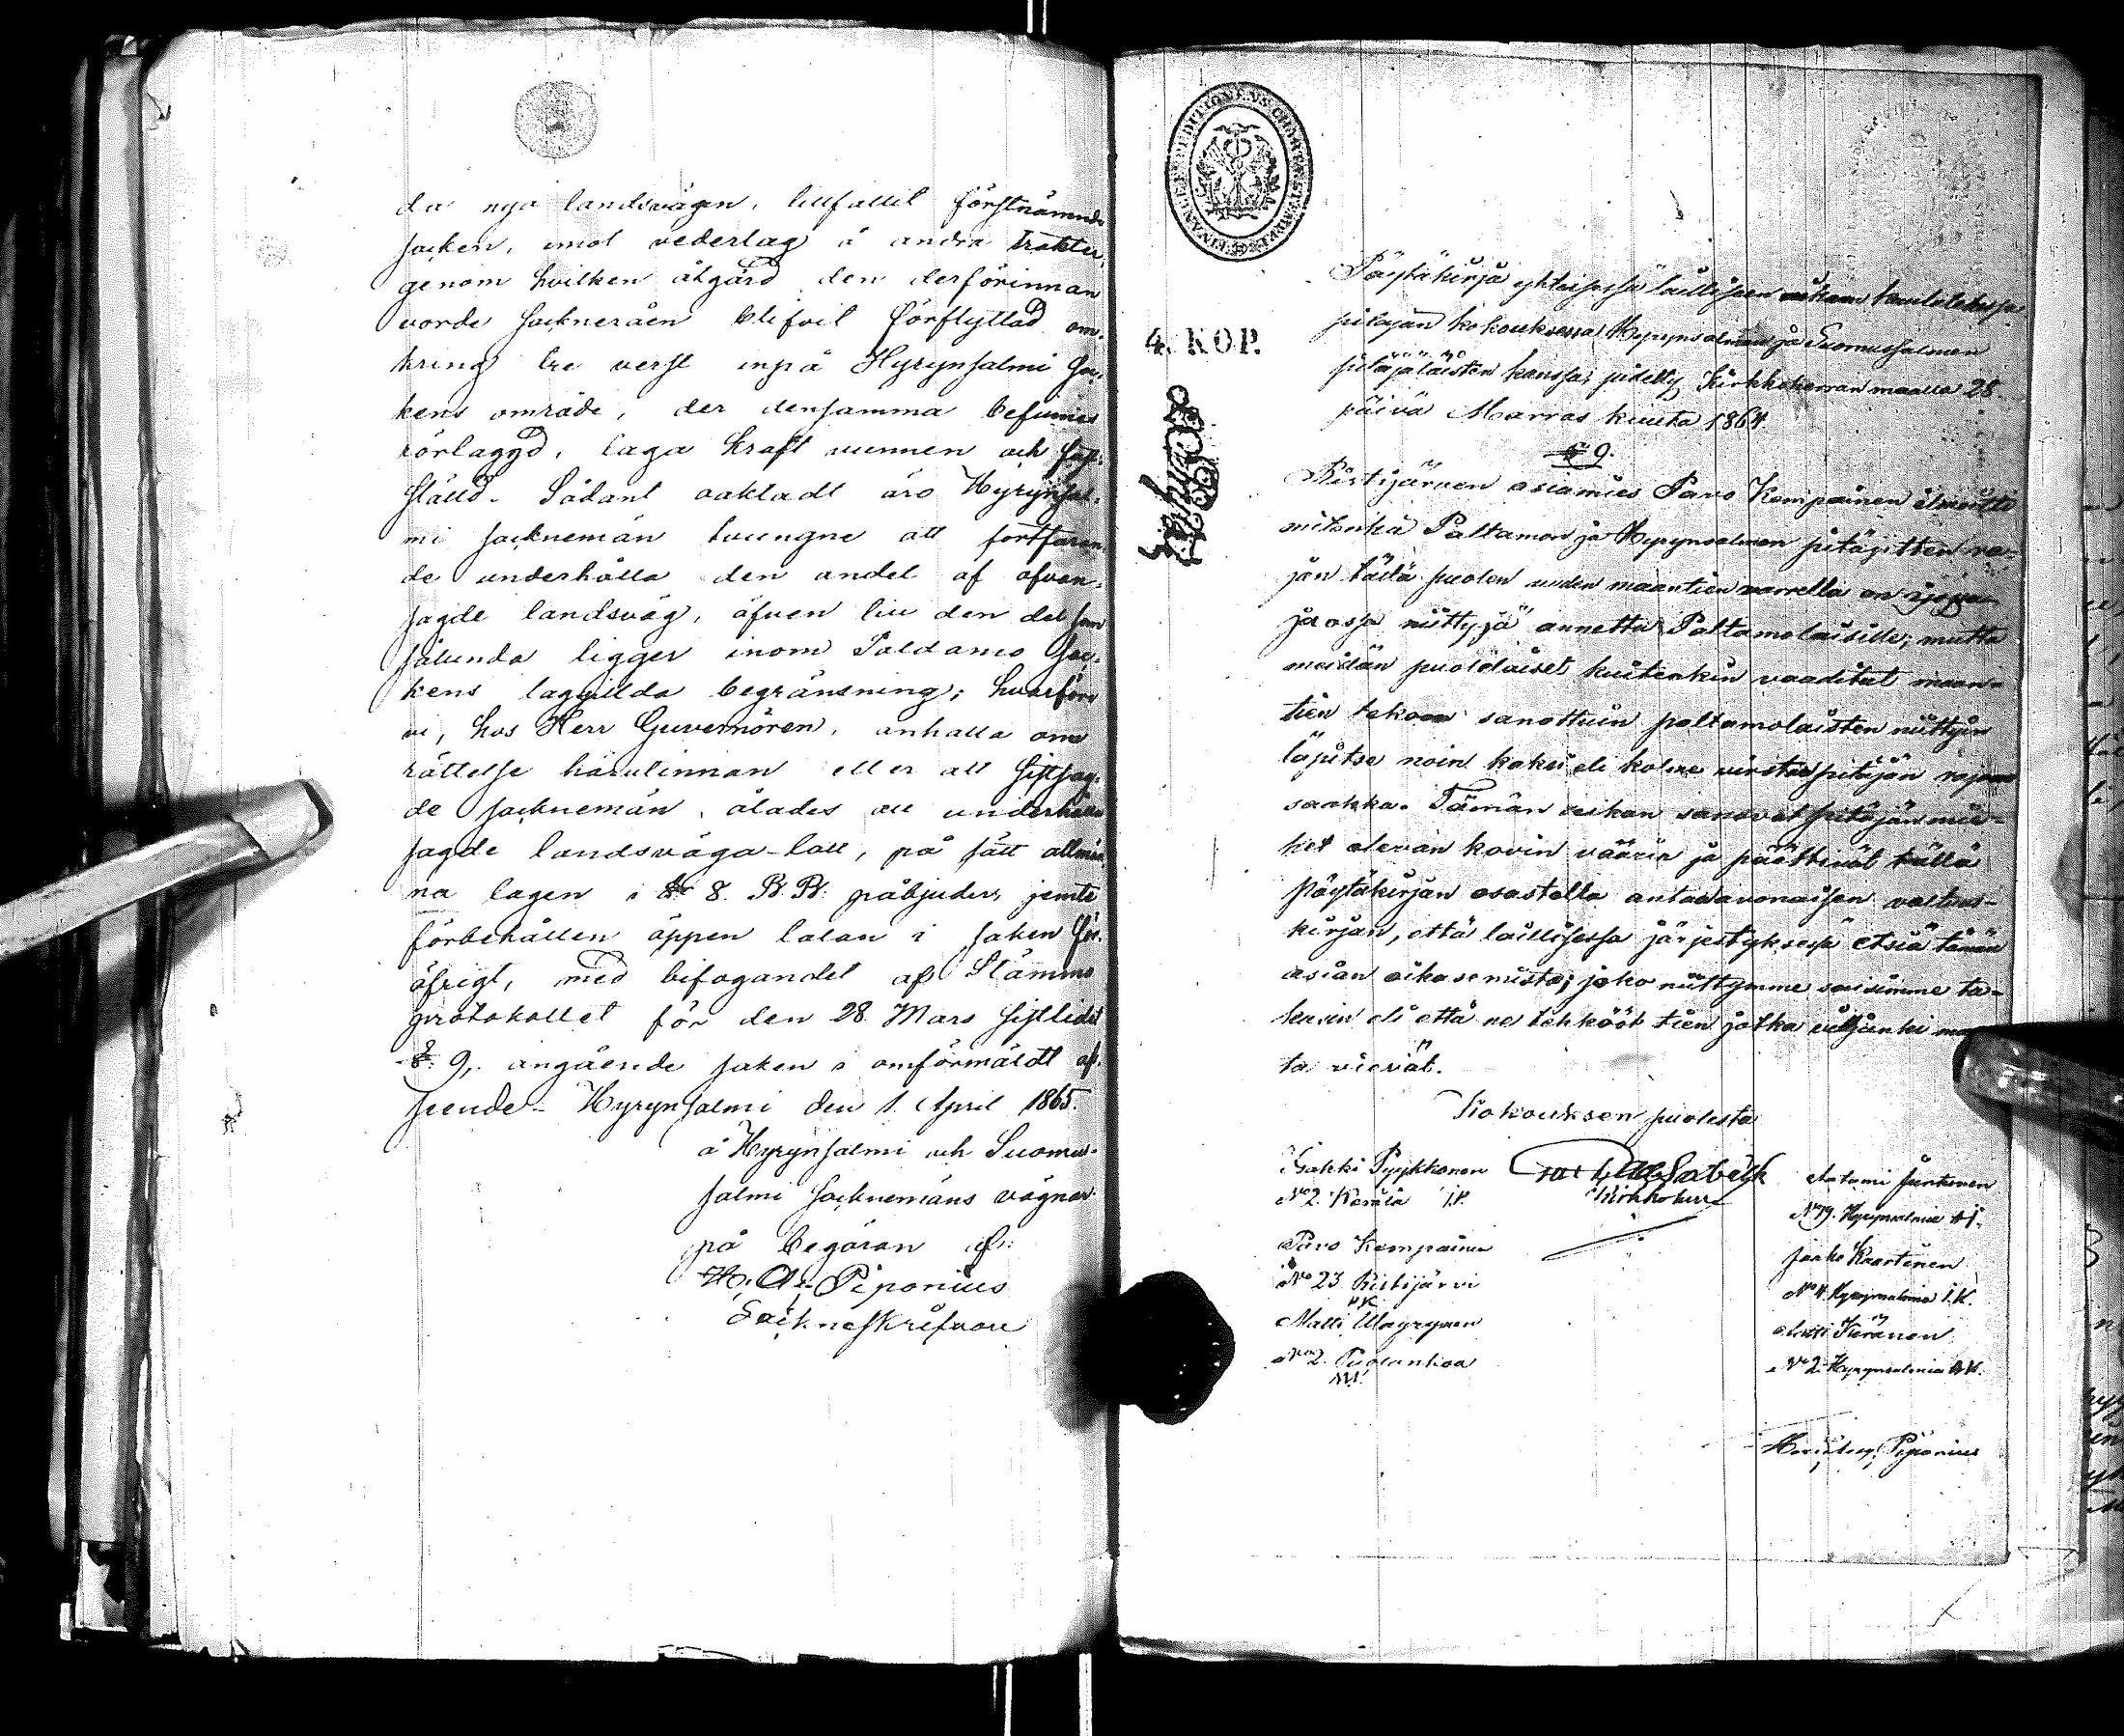 da nya landsvägen, tillfallit förstnämnde
socken, emot vederlag å andra trakter,
genom hvilken åtgärd den derförinnan
vorde sockneråen blifvit förflyttad om-
kring tre verst inpå Hyrynsalmi soc-
kens område, der densamma befinnes
rörlaggd, laga kraft vunnen och fast-
ställd. Sådant aaktadt äro Hyrynsal-
mi socknemän tvungne att fortfaran-
de underhålla den andel af ofvan-
sagde landsväg, äfven till den del som
sålunda ligger inom Paldamo soc-
kens laggillda begränsning; hvarföre
vi, hos Herr Guvernören, anhålla om
rättelse härutinnan eller att sistsag-
de socknemän, ålades att underhålla
sagde landsväga-lott, på sätt allmän-
na lagen i 8. B.B. påbjuder, jemte
förbehållen öppen talan i saken för
öfrigt, med bifogandet af Stämmo
protokollet för den 28 Mars sistlidet
§. 9,. angående saken i omförmäldt af-
seende. Hyrynsalmi den 1. April 1865.
å Hyrynsalmi och Suomus-
salmi socknemäns vägnar
på begäran af:
H. A. Piponius
Sockneskrifvare
FINANCE EXPEDITIONENS CHARTÆ
4. KOP.
Pöytäkirja yhteisessä laillisesen kuulutetussa
pitäjän kokouksessa Hyrynsalmen ja Suomussalmen
pitäjäläisten kanssa, pidetty Kirkkoherran maalla 28
päivä Marras kuuta 1864
§ 9.
Ristijärven asiamies Pavo Kempainen ilmoitti
mitenkä Paltamon ja Hyrynsalmen pitäjitten ra-
jan tällä puolen uuden maantien varrella on
ja ossa niittyjä annettu Paltamolaisille, mutta
meidän puolelaiset kuitenkin vaaditut maan-
tien tekoon sanottuin paltamolaisten niittyin
läpitse noin kaksi eli kolme virstaa pitäjän rajaan
saakka. Tämän seikan sanovat pitäjän mie-
het olevan kovin väärin ja päättivät tällä
pöytäkirjan osastolla antaa avonaisen valtuus-
kirjan, että laillisessa järjestyksessä etsiä tämän
asian oikasemista; joko niittymme saisimme ta-
kasin eli että ne tehkööt tien jotka viljänki maa-
ta vievät.
Kokouksen puolesta
Isakki Pyykkonen
No 2. Kerälä I.P.
Kirkkoherra
Aatami Juntunen
No 19. Hyrynsalmia
Pavo Kempainen
No 23 Ristijärvi
P K
Jaako Kaartinen
No 4. Hyrynsalmia I.K.
Matti Mayrynen
No 2. Puolankoa
M.M.
Antti Keränen
No 2. Hyrynsalmia A K.
Piponius